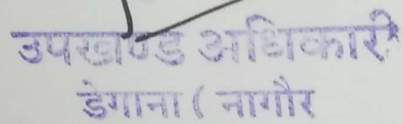 उपखण्ड अधिकारी
डेगाना ( नागौर